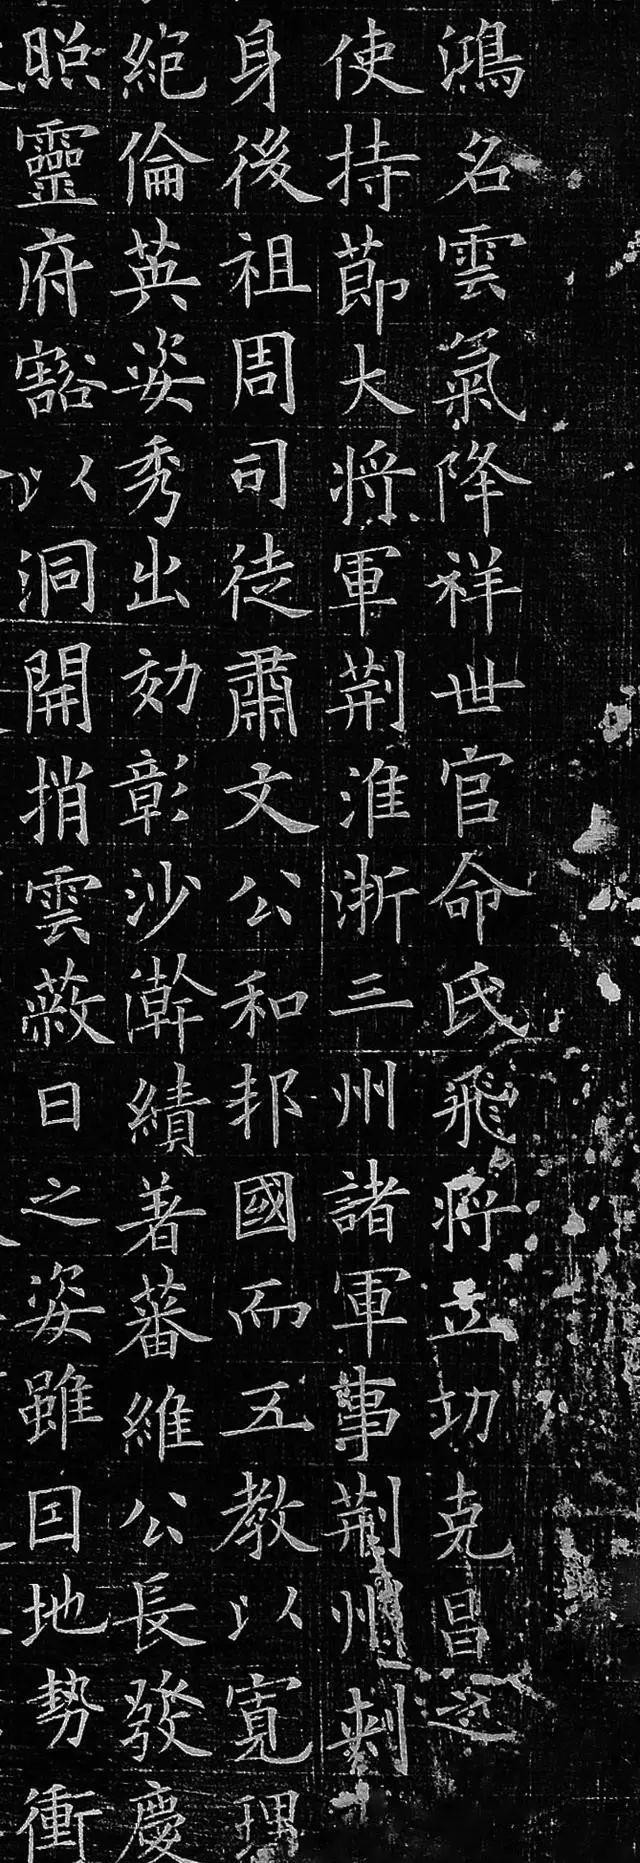 鴻名雲氣降祥世官命氏飛將立功克昌之
使持節大將軍荆淮浙三州諸軍事荆州刺
身後祖周司徒肅文公和邦國而五教以寬理
絶倫英姿秀出効彰沙漭績著蕃維公長發慶
照靈府豁以洞開捎雲蔽日之姿雖因地勢衝